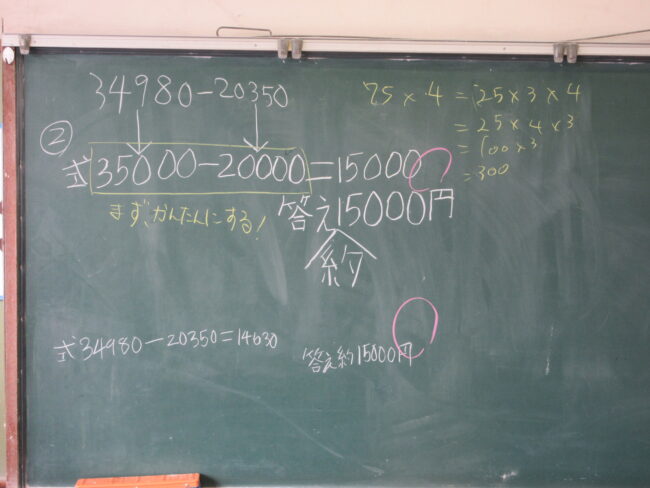 34980-20350
②
式 35000-20000=15000
まず、かんたんにする!
答え15000円
約
式 34980-20350=14630
答え約15000円
75×4=25×3×4
=25×4×3
=100×3
=300